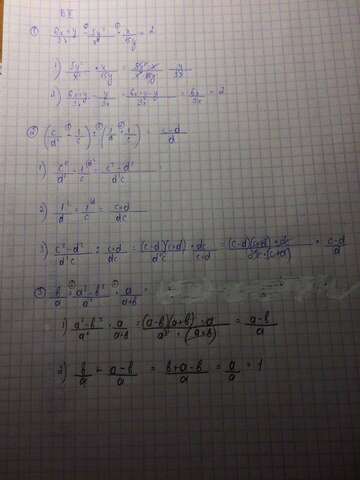 В II
① (6x+y)/3x - 5y²/x² · x/15y = 2
1) 5y²/x² · x/15y = 5y²·x/x²·15y = y/3x
2) (6x+y)/3x - y/3x = (6x+y-y)/3x = 6x/3x = 2
② (c/d² - 1/c) : (1/d + 1/c) = (c-d)/d
1) c/d² - 1/c = (c²-d²)/d²c
2) 1/d + 1/c = (c+d)/dc
3) (c²-d²)/d²c : (c+d)/dc = (c-d)(c+d)/d²c · dc/(c+d) = (c-d)(c+d)·dc/d²c·(c+d) = (c-d)/d
③ b/a + (a²-b²)/a² · a/(a+b) =
1) (a²-b²)/a² · a/(a+b) = (a-b)(a+b)·a/a²·(a+b) = (a-b)/a
2) b/a + (a-b)/a = (b+a-b)/a = a/a = 1